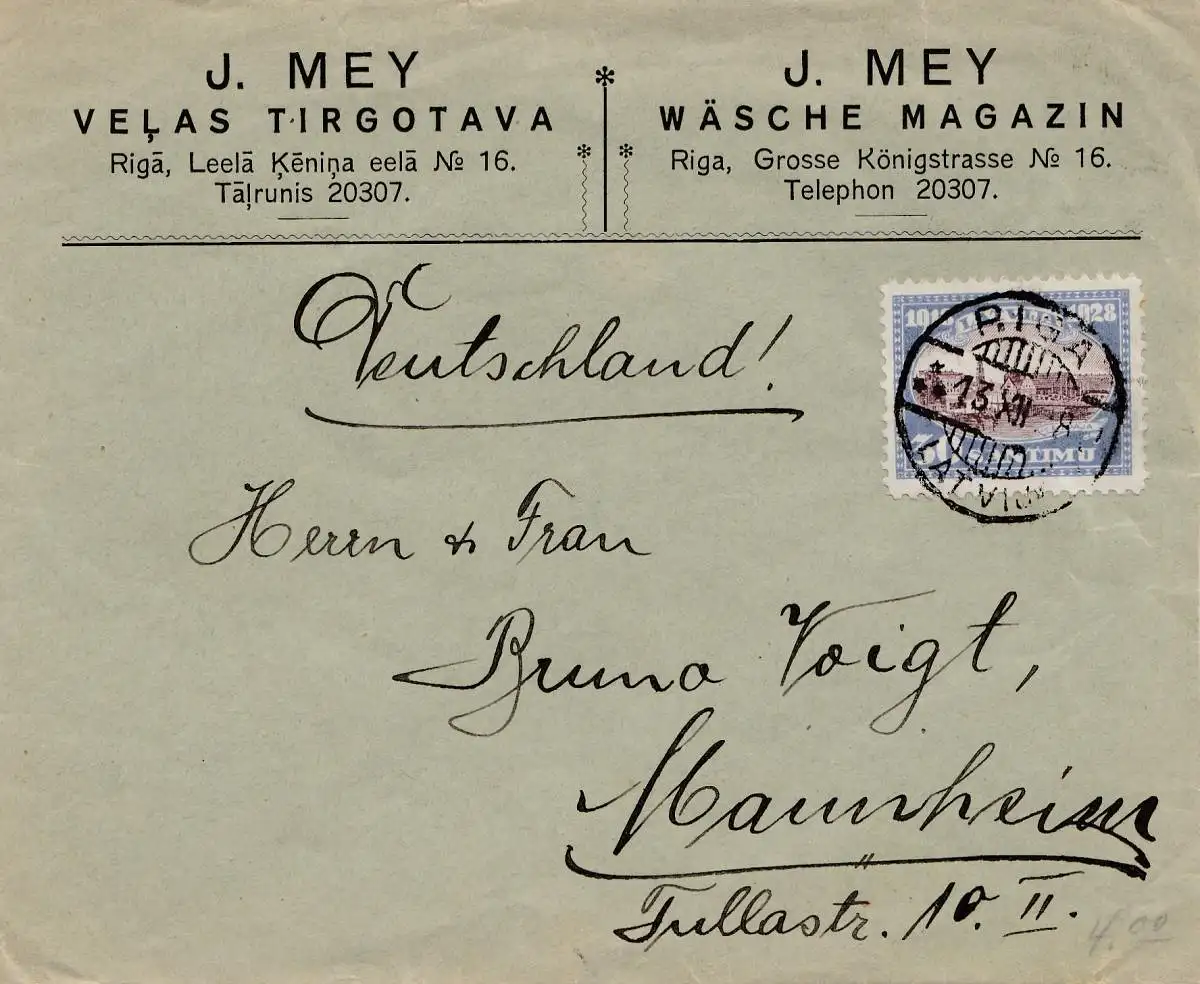 J. MEY
VEĻAS TIRGOTAVA
Rigā, Leelā Ķēniņa eelā № 16.
Tāļrunis 20307.
J. MEY
WÄSCHE MAGAZIN
Riga, Grosse Königstrasse № 16.
Telephon 20307.
1928
RIGA
13 XII
LATVIJA
Deutschland!
Herrn & Frau
Bruno Voigt,
Mannheim
Tullastr. 10. II.
4.00